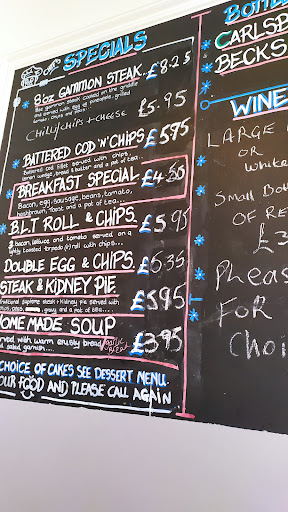 SPECIALS
8'oz GAMMON STEAK £8.25
8oz gammon steak cooked on the griddle
and served with egg or pineapple, grilled
tomato, chips and peas
CHILLI/CHIPS + CHEESE £5.95
BATTERED COD 'N' CHIPS £5.95
Battered cod fillet served with chips,
lemon wedge, bread & butter and a pot of tea
BREAKFAST SPECIAL £4.50
Bacon, egg, sausage, beans, tomato,
hashbrown, toast and a pot of tea...
B.L.T ROLL & CHIPS £5.95
bacon, lettuce and tomato served on a
lightly toasted torpedo roll with chips...
DOUBLE EGG & CHIPS £6.35
STEAK & KIDNEY PIE £5.95
Traditional supreme steak + Kidney pie served with
gravy and a pot of tea...
HOME MADE SOUP £3.95
served with warm crusty bread
and salad garnish....
CHOICE OF CAKES SEE DESSERT MENU
OUR FOOD AND PLEASE CALL AGAIN
BOTTL
CARLSB
BECKS
WINE
LARGE
OR
White
SMALL Bo
OF RE
£3
Pleas
FOR
Choi